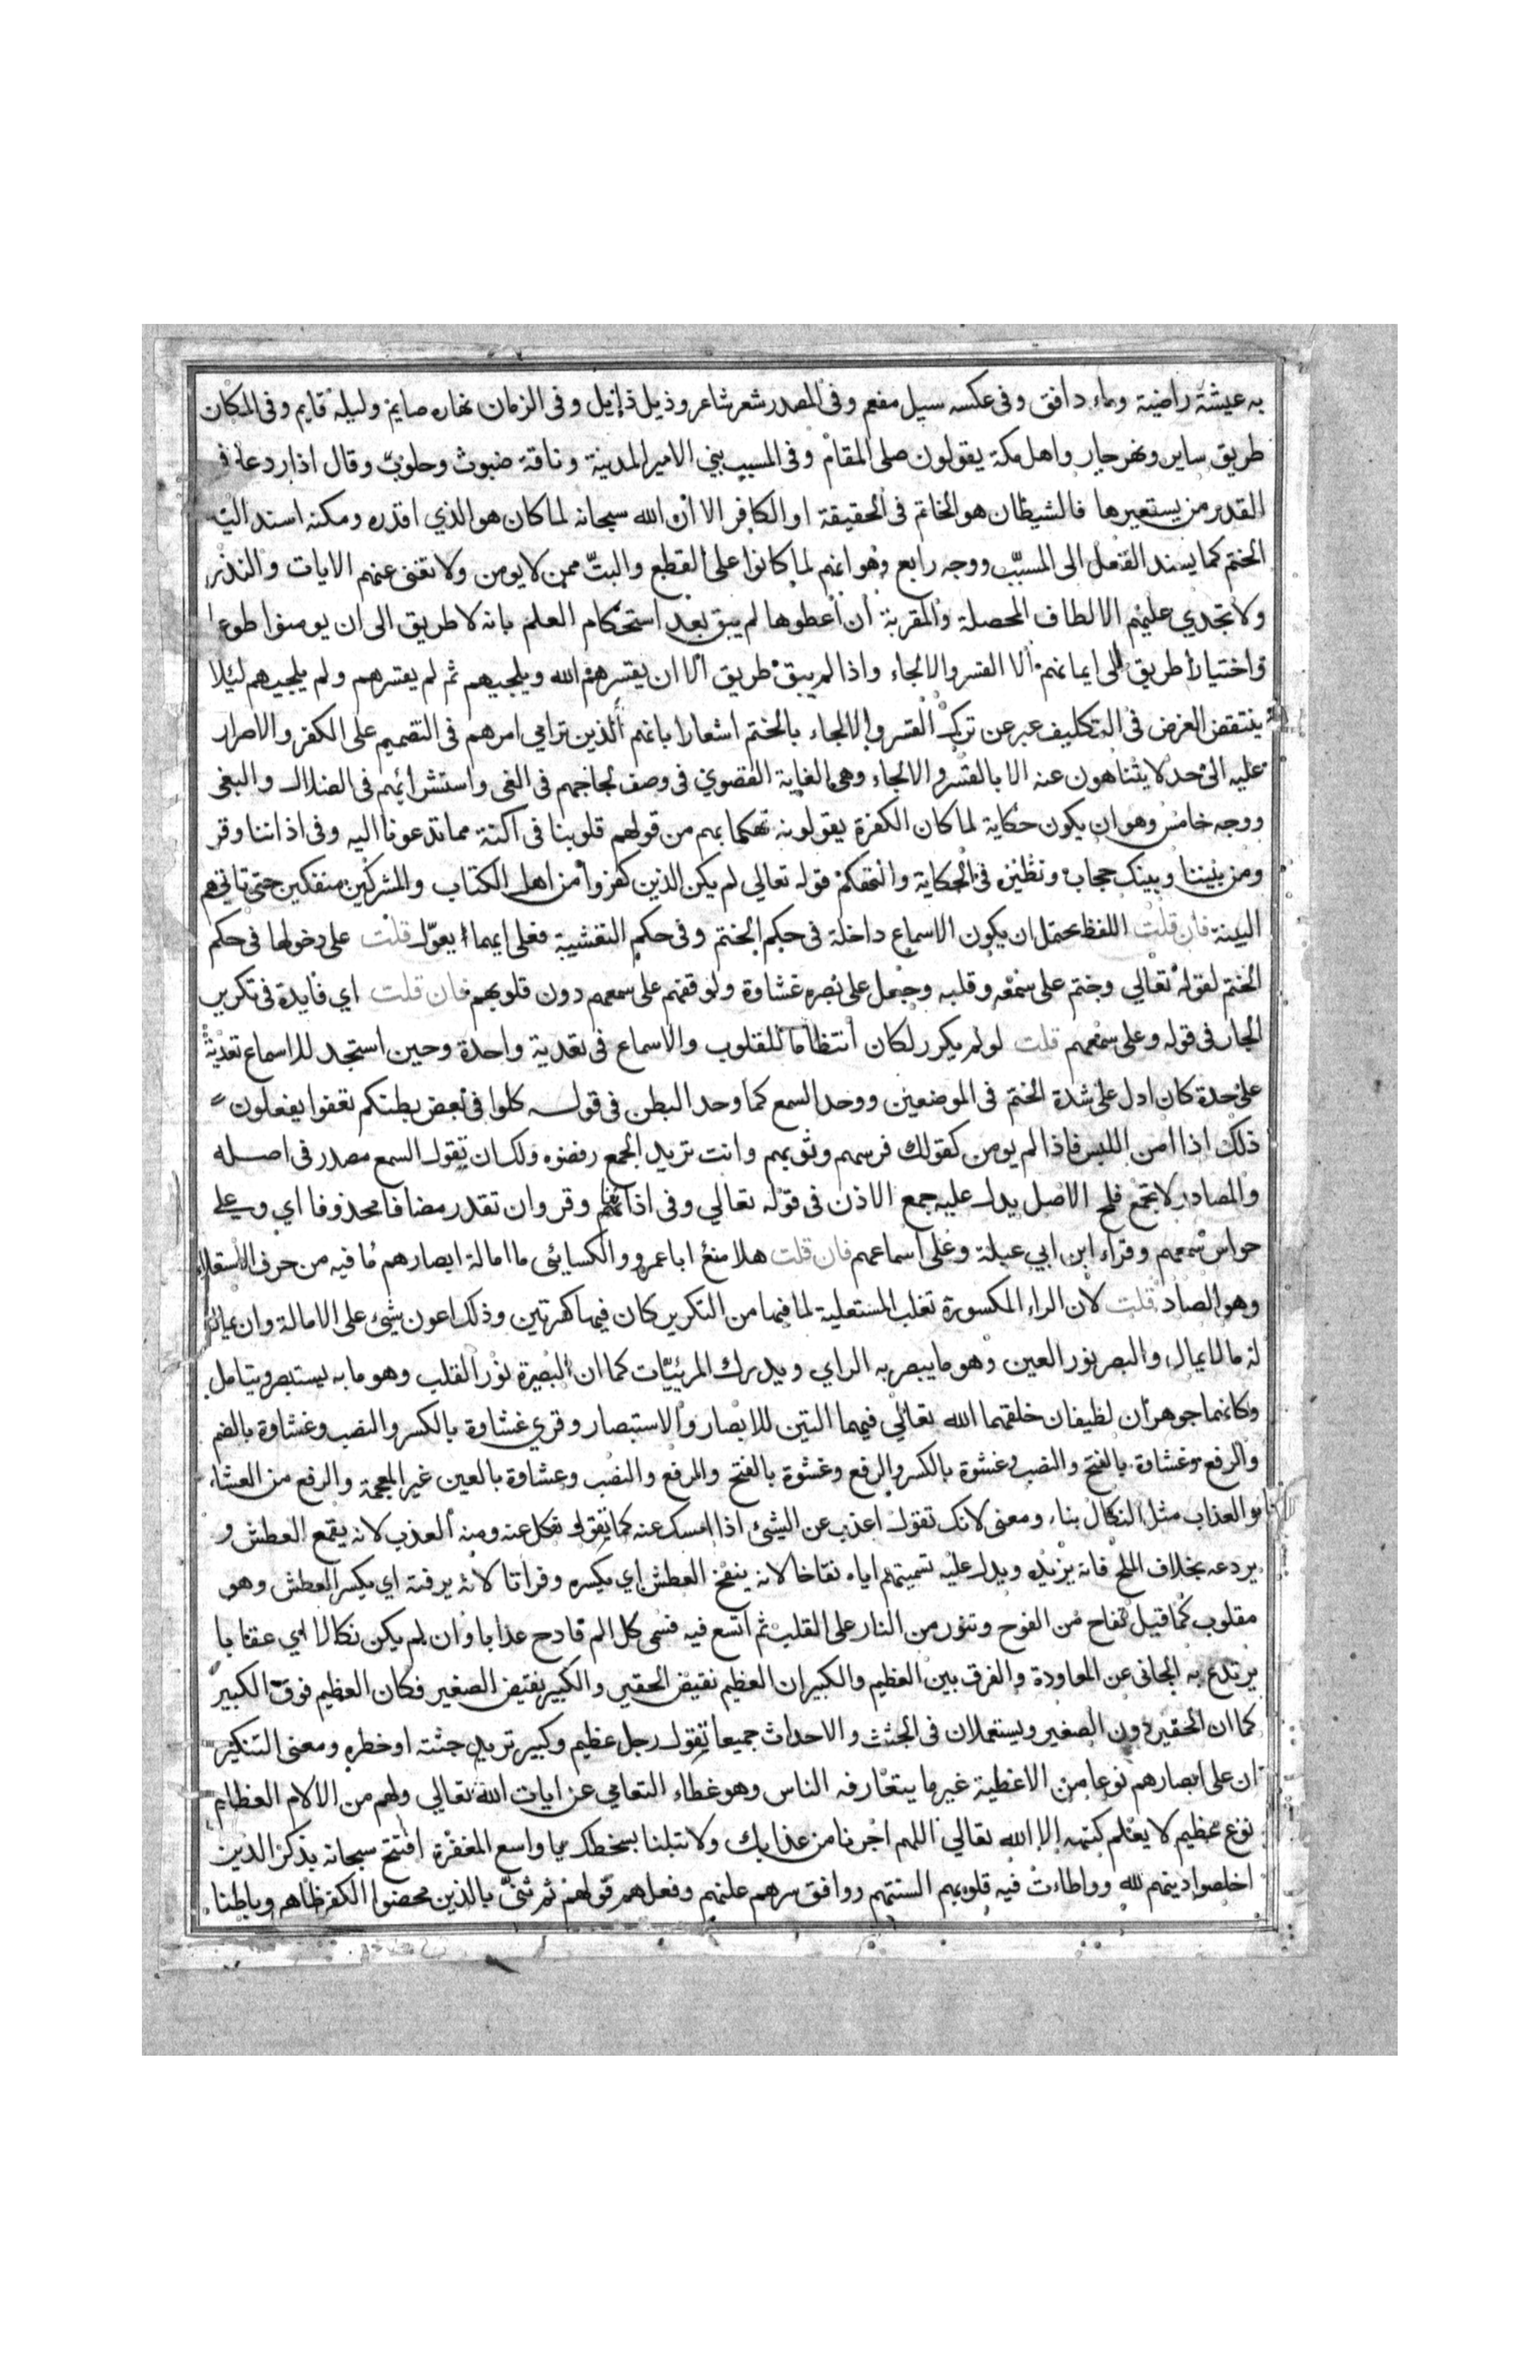 به عيشة راضية وماء دافق وفى عكسه سيل مفعم وفى المصدر شعر شاعر وذيل ذايل وفى الزمان نهاره صايم وليله قايم وفى المكان
طريق ساير ونهر جار واهل مكة يقولون صلى المقام وفى المسبب بني الامير المدينة وناقة ضبوث وحلوب وقال اذا رد عافى
القدر من يستعيرها فالشيطان هو الخاتم فى الحقيقة او الكافر الا ان الله سبحانه لما كان هو الذي اقدره ومكنه اسند اليه
الختم كما يسند الفعل الى المسبّب ووجه رابع وهو انهم لما كانوا على القطع والبتّ ممن لا يومن ولا تغنى عنهم الايات والنذر
ولا تجدي عليهم الالطاف المحصلة والمقربة ان اعطوها لم يبق بعد استحكام العلم بانه لا طريق الى ان يومنوا طوعا
واختيارا طريق الى ايمانهم الا القسر والالجاء واذا لم يبق طريق الا ان يقسرهم الله ويلجيهم ثم لم يقسرهم ولم يلجيهم ليلا
ينتقض الغرض فى التكليف عبر عن ترك القسر والالجاء بالختم اشعارا بانهم الذين ترامي امرهم فى التصميم على الكفر والاصرار
عليه الى حد لا يتناهون عنه الا بالقسر والالجاء وهى الغاية القصوي فى وصف لجاجهم فى الغى واستشرائهم فى الضلال والبغى
ووجه خامس وهو ان يكون حكاية لما كان الكفرة يقولونه تهكما بهم من قولهم قلوبنا فى اكنة مما تدعونا اليه وفى اذاننا وقر
ومن بيننا وبينك حجاب ونظيره فى الحكاية والتهكم قوله تعالي لم يكن الذين كفروا من اهل الكتاب والمشركين منفكين حتى تاتيهم
البينة فان قلت اللفظ يحتمل ان يكون الاسماع داخلة فى حكم الختم وفى حكم التغشية فعلى ايهما يعوّل قلت على دخولها فى حكم
الختم لقوله تعالي وختم على سمعه وقلبه وجعل على بصره غشاوة ولوقفهم على سمعهم دون قلوبهم فان قلت اي فايدة فى تكرير
الجار فى قوله وعلى سمعهم قلت لو لم يكرر لكان انتظاما للقلوب والاسماع فى تعدية واحدة وحين استجد للاسماع تعدية
على حدة كان ادل على شدة الختم فى الموضعين ووحد السمع كما وحد البطن فى قوله كلوا فى بعض بطنكم تعفوا يفعلون
ذلك اذا امن اللبس فاذا لم يومن كقولك فرسهم وثوبهم وانت تريد الجمع رفضوه ولك ان تقول السمع مصدر فى اصله
والمصادر لا تجمع فلمح الاصل يدل عليه جمع الاذن فى قوله تعالي وفى اذاننا وقر وان تقدر مضافا محذوفا اي وعلى
حواس سمعهم وقراء ابن ابي عبلة وعلى اسماعهم فان قلت هلا منع ابا عمرو والكسايئى ما امالة ابصارهم ما فيه من حرف الاستعلاء
وهو الصاد قلت لان الراء المكسورة تغلب المستعلية لما فيها من التكرير كان فيها كسرتين وذلك اعون شئ على الامالة وان يمال
له ما لا يمال والبصر نور العين وهو ما يبصر به الراي ويدرك المرئيّات كما ان البصيرة نور القلب وهو ما به يستبصر ويتامل
وكانهما جوهران لطيفان خلقهما الله تعالي فيهما التين للابصار والاستبصار وقري غشاوة بالكسر والنصب وغشاوة بالضم
والرفع وغشاوة بالفتح والنصب وغشوة بالكسر والرفع وغشوة بالفتح والرفع والنصب وعشاوة بالعين غير المعجمة والرفع من العشاء
والعذاب مثل النكال بناء ومعنى لانك تقول اعذب عن الشيئ اذا امسك عنه كما تقول نكل عنه ومنه العذب لانه يقمع العطش و
يردعه بخلاف الملح فانه يزيده ويدل عليه تسميتهم اياه نقاخا لانه ينقخ العطش اي يكسره وفراتا لانه يرفته اي يكسر العطش وهو
مقلوب كما قيل تفاح من الفوح وتنور من النار على القلب ثم اتسع فيه فسمى كل الم قادح عذابا وان لم يكن نكالا اي عقابا
يرتدع به الجانى عن المعاودة والفرق بين العظيم والكبير ان العظيم نقيض الحقير والكبير نقيض الصغير فكان العظيم فوق الكبير
كما ان الحقير دون الصغير ويستعملان فى الجثث والاحداث جميعا تقول رجل عظيم وكبير تريد جثته او خطره ومعنى التنكير
ان على ابصارهم نوعا من الاغطية غير ما يتعارفه الناس وهو غطاء التعامي عن ايات الله تعالي ولهم من الالام العظايم
نوع عظيم لا يعلم كنهه الا الله تعالي اللهم اجرنا من عذابك ولا تبلنا بسخطك يا واسع المغفرة افتتح سبحانه بذكر الذين
اخلصوا دينهم لله وواطاءت فيه قلوبهم السنتهم ووافق سرهم علنهم وفعلهم قولهم ثم ثنىّ بالذين محضوا الكفر ظاهر وباطنا